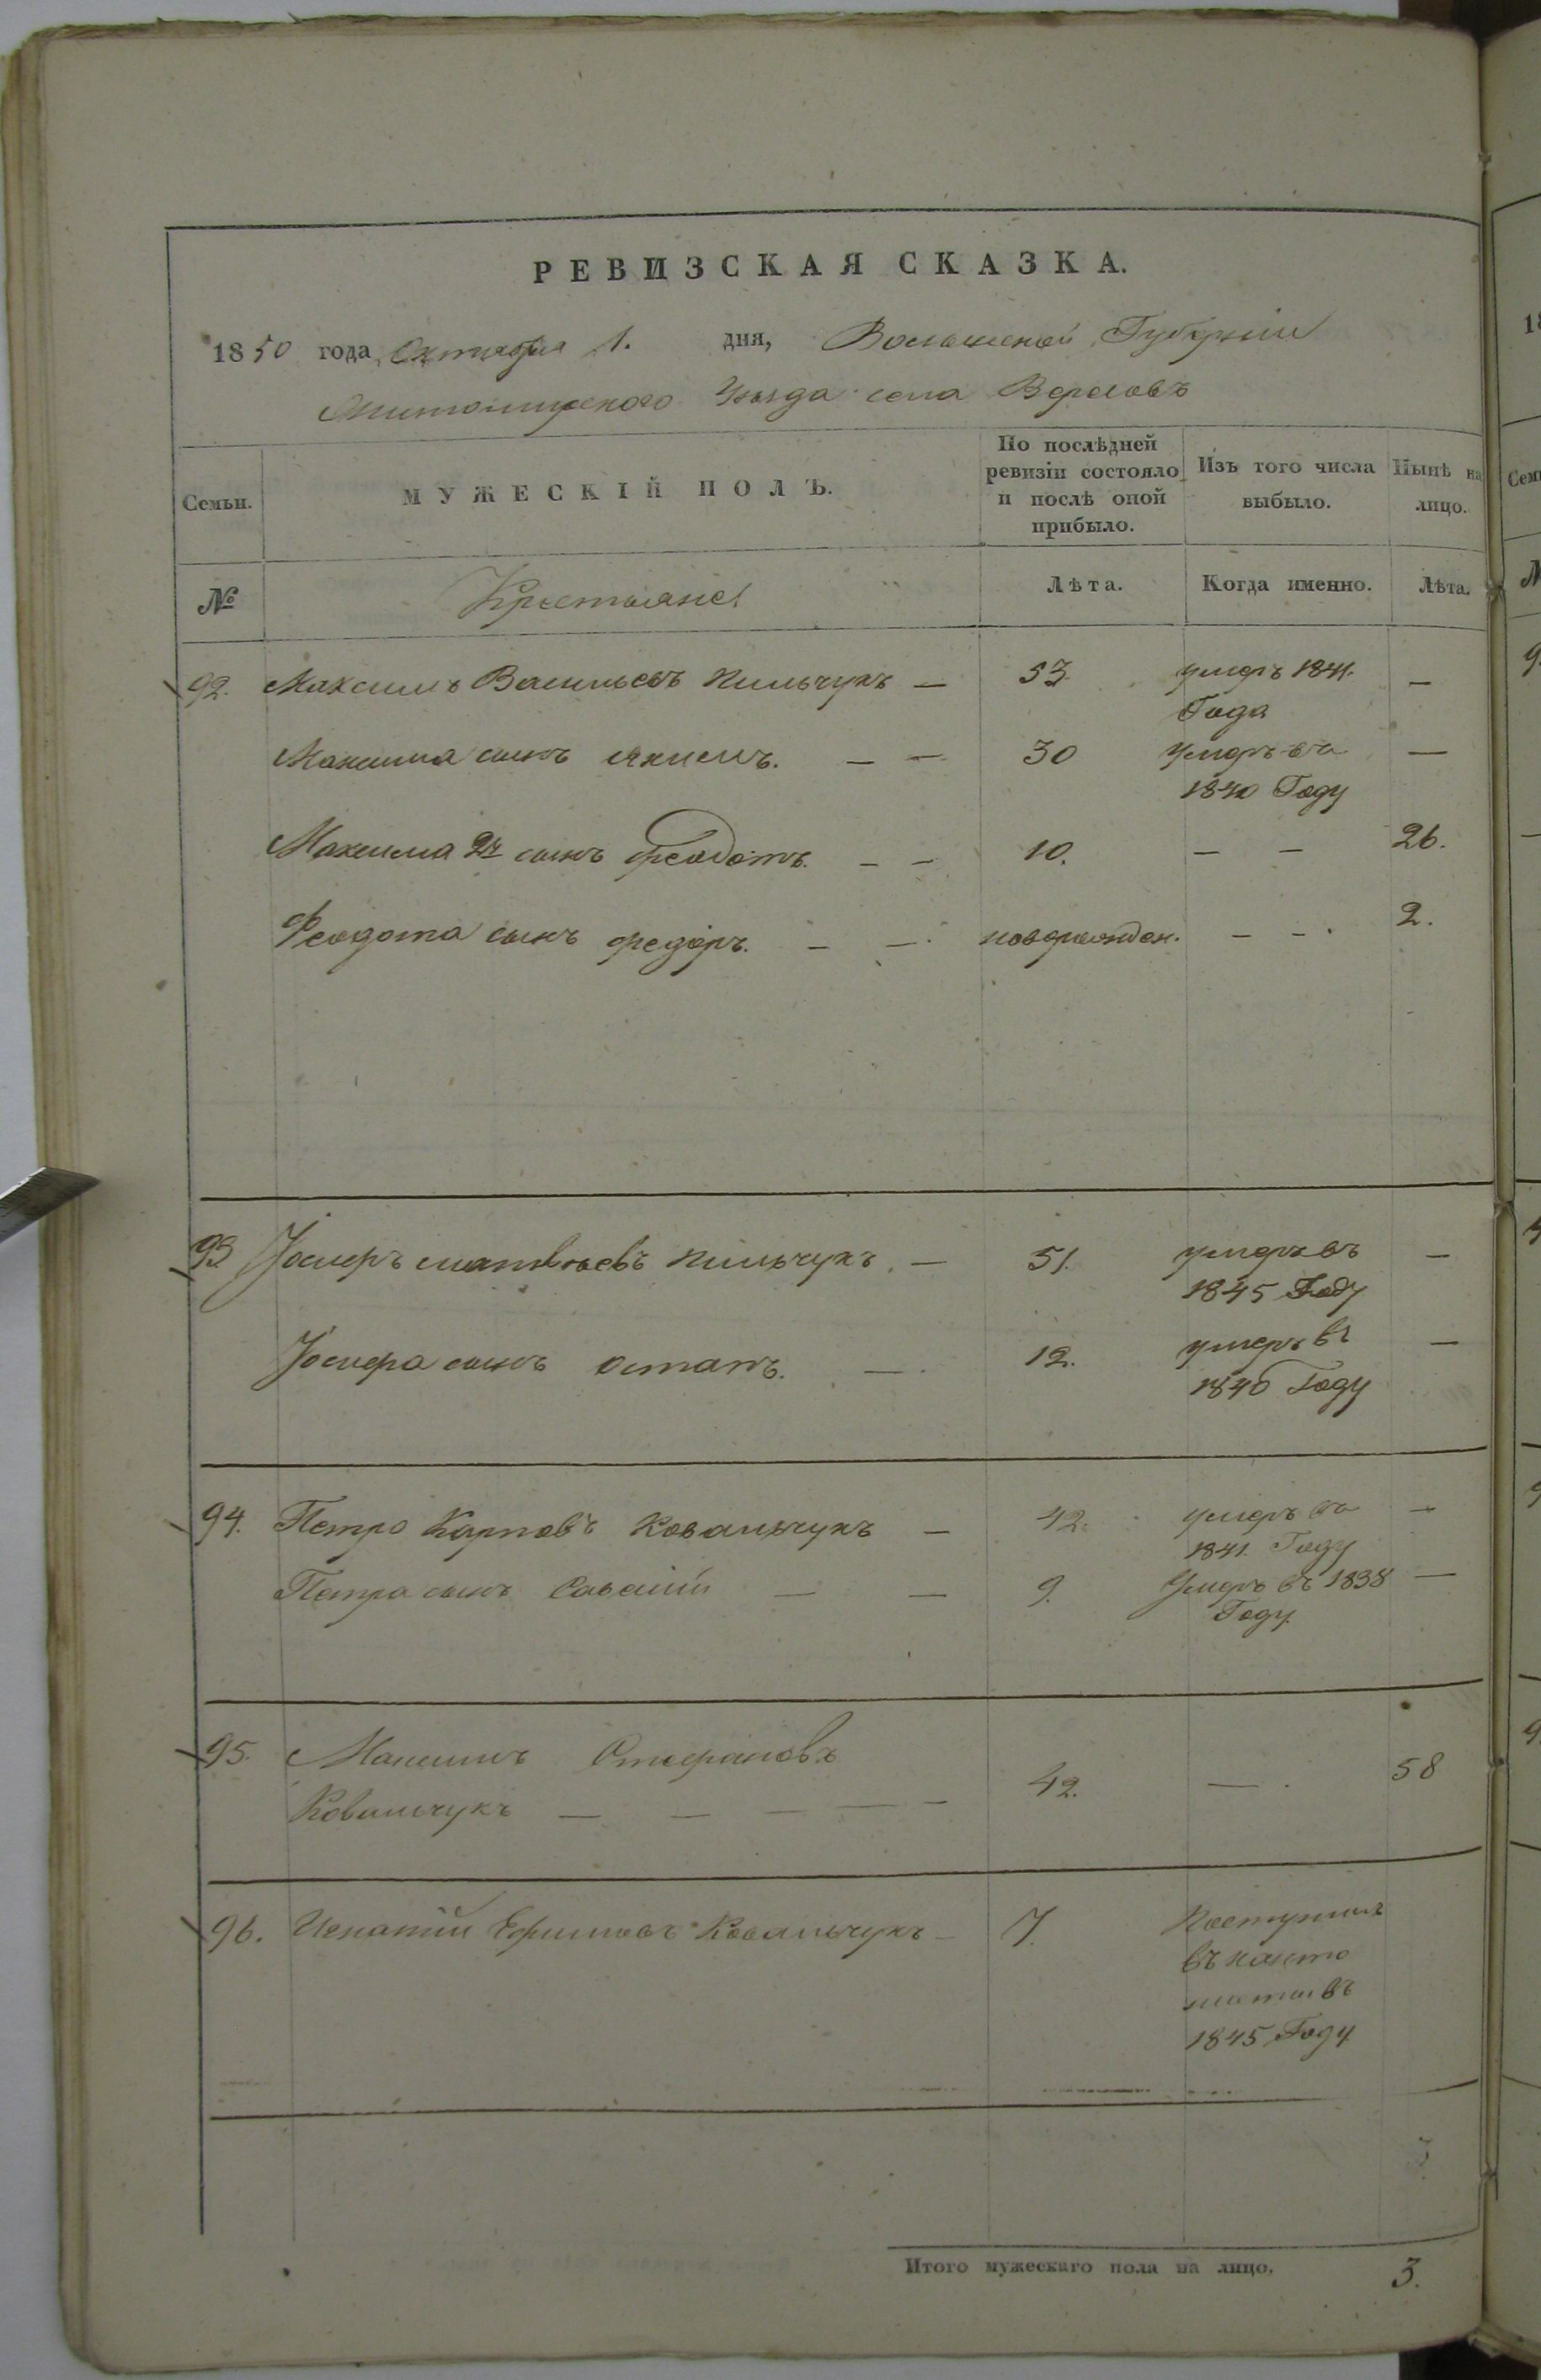 РЕВИЗСКАЯ СКАЗКА.
1850 года Октября 1. дня, Волынской Губерніи
Житомирского Уѣзда села Вересовъ
Семьи. МУЖЕСКІЙ ПОЛЪ. По послѣдней ревизіи состояло и послѣ оной прибыло. Изъ того числа выбыло. Нынѣ на лицо.
№ Крестьяне. Лѣта. Когда именно. Лѣта.
92. Максимъ Васильевъ Кильчукъ — 53. умеръ 1841. —
Года
Максима сынъ Якимъ. — — 30 умеръ въ —
1840 Году
Максима 2й сынъ Феодотъ. — — 10. — — 26.
Феодота сынъ Федоръ. — — новорожден. — — 2.
93 Іосифъ Матвѣевъ Кильчукъ. — 51. умеръ въ —
1845 Году
Іосифа сынъ Остапъ. — 12. умеръ въ —
1840 Году
94. Петро Карповъ Ковальчукъ — 42. умеръ въ —
1841. Году
Петра сынъ Савелій — — 9. Умеръ въ 1838 —
Году.
95. Максимъ Стефановъ
Ковальчукъ — — — — — 42. — 58
96. Игнатій Ефимовъ Ковальчукъ — 7. Поступилъ
въ канто
нисты въ
1845 Году
Итого мужескаго пола на лицо. 3.